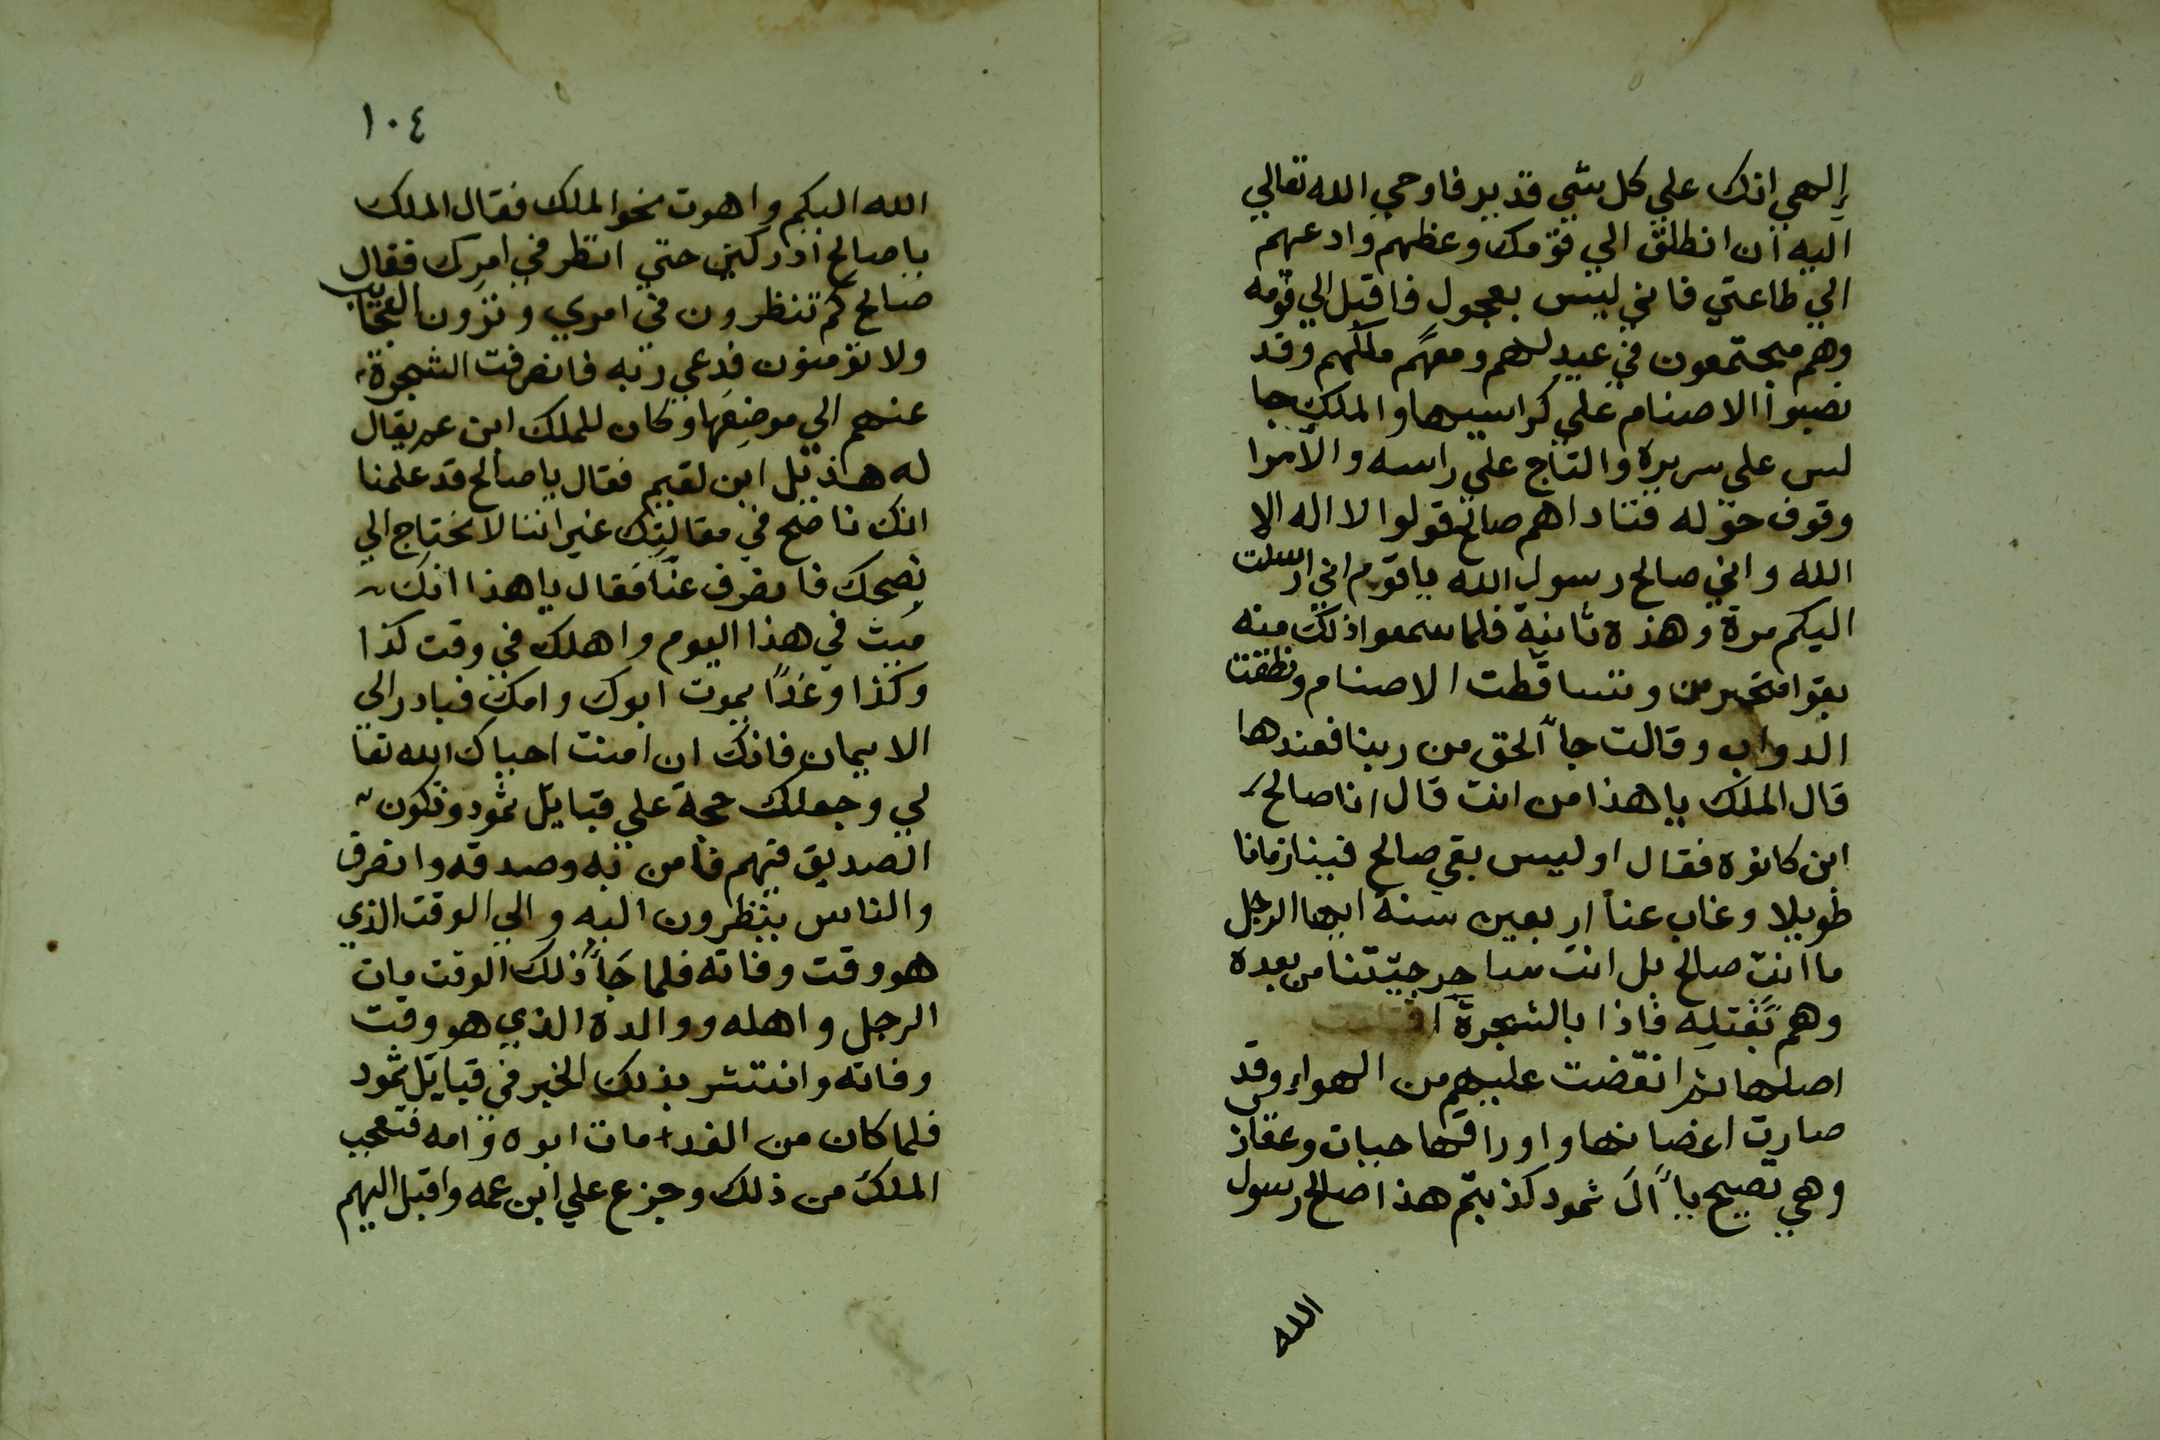 إلهي انك علي كل شي قدير فاوحي الله تعالي
اليه ان انطلق الي قومك وعظهم وادعهم
الي طاعتي فاني ليس بعجول فاقبل الي قومه
وهم مجتمعون في عيد لهم ومعهم ملكهم وقد
نصبوا الاصنام علي كراسيها والملك جا
لس علي سريره والتاج علي راسه والامرا
وقوف حوله فناداهم صالح قولوا لا اله الا
الله واني صالح رسول الله يا قوم اني ارسلت
اليكم مرة وهذه ثانية فلما سمعوا ذلك منه
بقوا متحيرين وتساقطت الاصنام ونطقت
الدواب وقالت جاء الحق من ربنا فعندها
قال الملك يا هذا من انت قال انا صالح
ابن كانوه فقال اوليس بقي صالح فينا زمانا
طويلا وغاب عنا اربعين سنة ايها الرجل
ما انت صالح بل انت ساحر جيتنا من بعده
وهم بقتله فاذا بالشجرة
اصلها ثم انقضت عليهم من الهواء وقد
صارت اغصانها واوراقها حيات وعقارب
وهي تصيح يا آل ثمود كذبتم هذا صالح رسول
الله
١٠٤
الله اليكم واهوت نحو الملك فقال الملك
يا صالح ادركني حتي انظر في امرك فقال
صالح كم تنظرون في امري وترون العجايب
ولا تؤمنون فدعي ربه فانصرفت الشجرة
عنهم الي موضعها وكان للملك ابن عم يقال
له هذيل ابن لقيم فقال يا صالح قد علمنا
انك ناصح في مقالتك غير اننا لا نحتاج الي
نصحك فانصرف عنا فقال يا هذا انك
ميت في هذا اليوم واهلك في وقت كذا
وكذا وغدًا يموت ابوك وامك فبادر الي
الايمان فانك ان امنت احياك الله تعا
لي وجعلك حجة علي قبايل ثمود وتكون
الصديق فيهم فامن به وصدقه وانصرف
والناس ينظرون اليه والي الوقت الذي
هو وقت وفاته فلما جاء ذلك الوقت مات
الرجل واهله ووالده الذي هو وقت
وفاته وانتشر بذلك الخبر في قبايل ثمود
فلما كان من الغد مات ابوه وامه فتعجب
الملك من ذلك وجزع علي ابن عمه واقبل اليهم